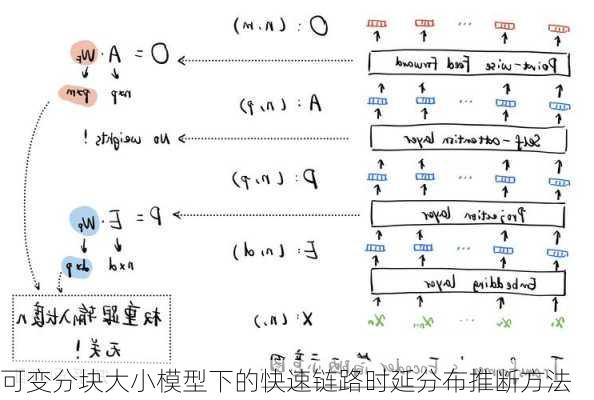 O : (n, m)
O = A · W_F
n×p p×m
Point-wise Feed Forward
A : (n, p)
No weights !
Self-attention layer
P : (n, p)
P = E · W_P
n×d d×p
Projection layer
E : (n, d)
Embedding layer
X : (n, )
x₁ x₂ ... xₘ xₙ
权重跟输入长度n
无关!
Transformer's Encoder 示意图
可变分块大小模型下的快速链路时延分布推断方法